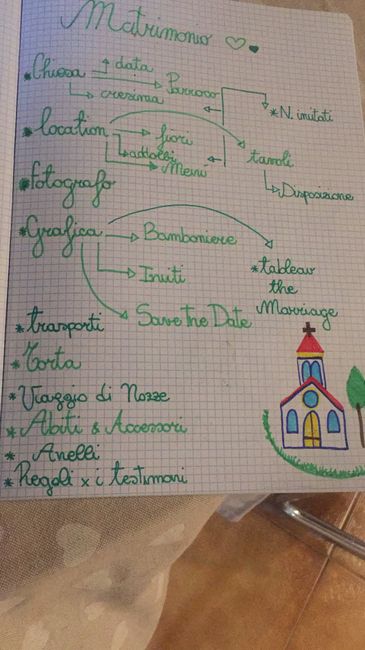 Matrimonio
* Chiesa
data
Parroco
cresima
* N. invitati
* location
fiori
addobbi
Menù
tavoli
Disposizione
* Fotografo
* Grafica
Bomboniere
Inviti
Save The Date
* tableau
the
Marriage
* trasporti
* Torta
* Viaggio di Nozze
* Abiti & Accessori
* Anelli
* Regali x i testimoni